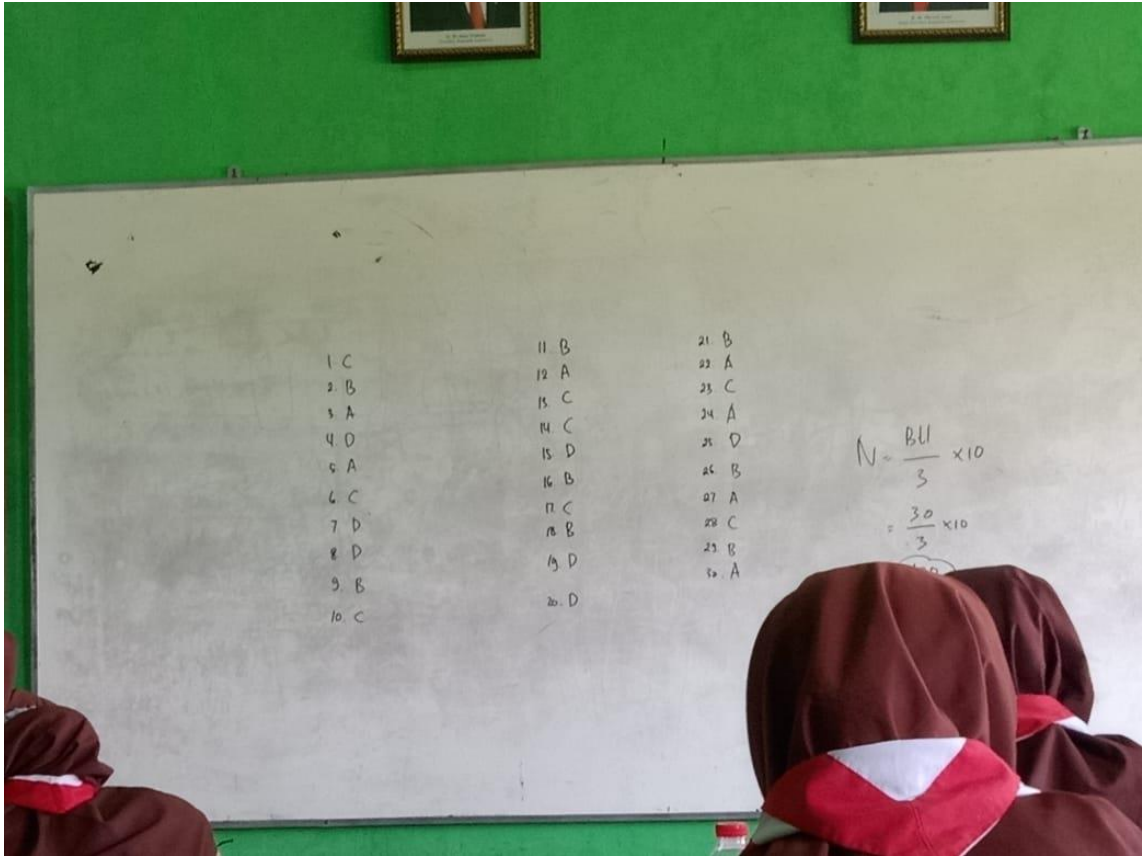 1. C
2. B
3. A
4. D
5. A
6. C
7. D
8. D
9. B
10. C
11. B
12. A
13. C
14. C
15. D
16. B
17. C
18. B
19. D
20. D
21. B
22. A
23. C
24. A
25. D
26. B
27. A
28. C
29. B
30. A
N = BU/3 ×10
= 30/3 ×10